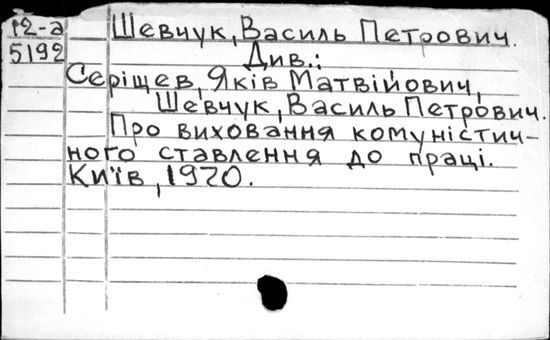 12-а Шевчук, Василь Петрович.
5192 Див.:
Серіщев, Яків Матвійович,
Шевчук, Василь Петрович.
Про виховання комуністич-
ного ставлення до праці.
Київ, 1970.